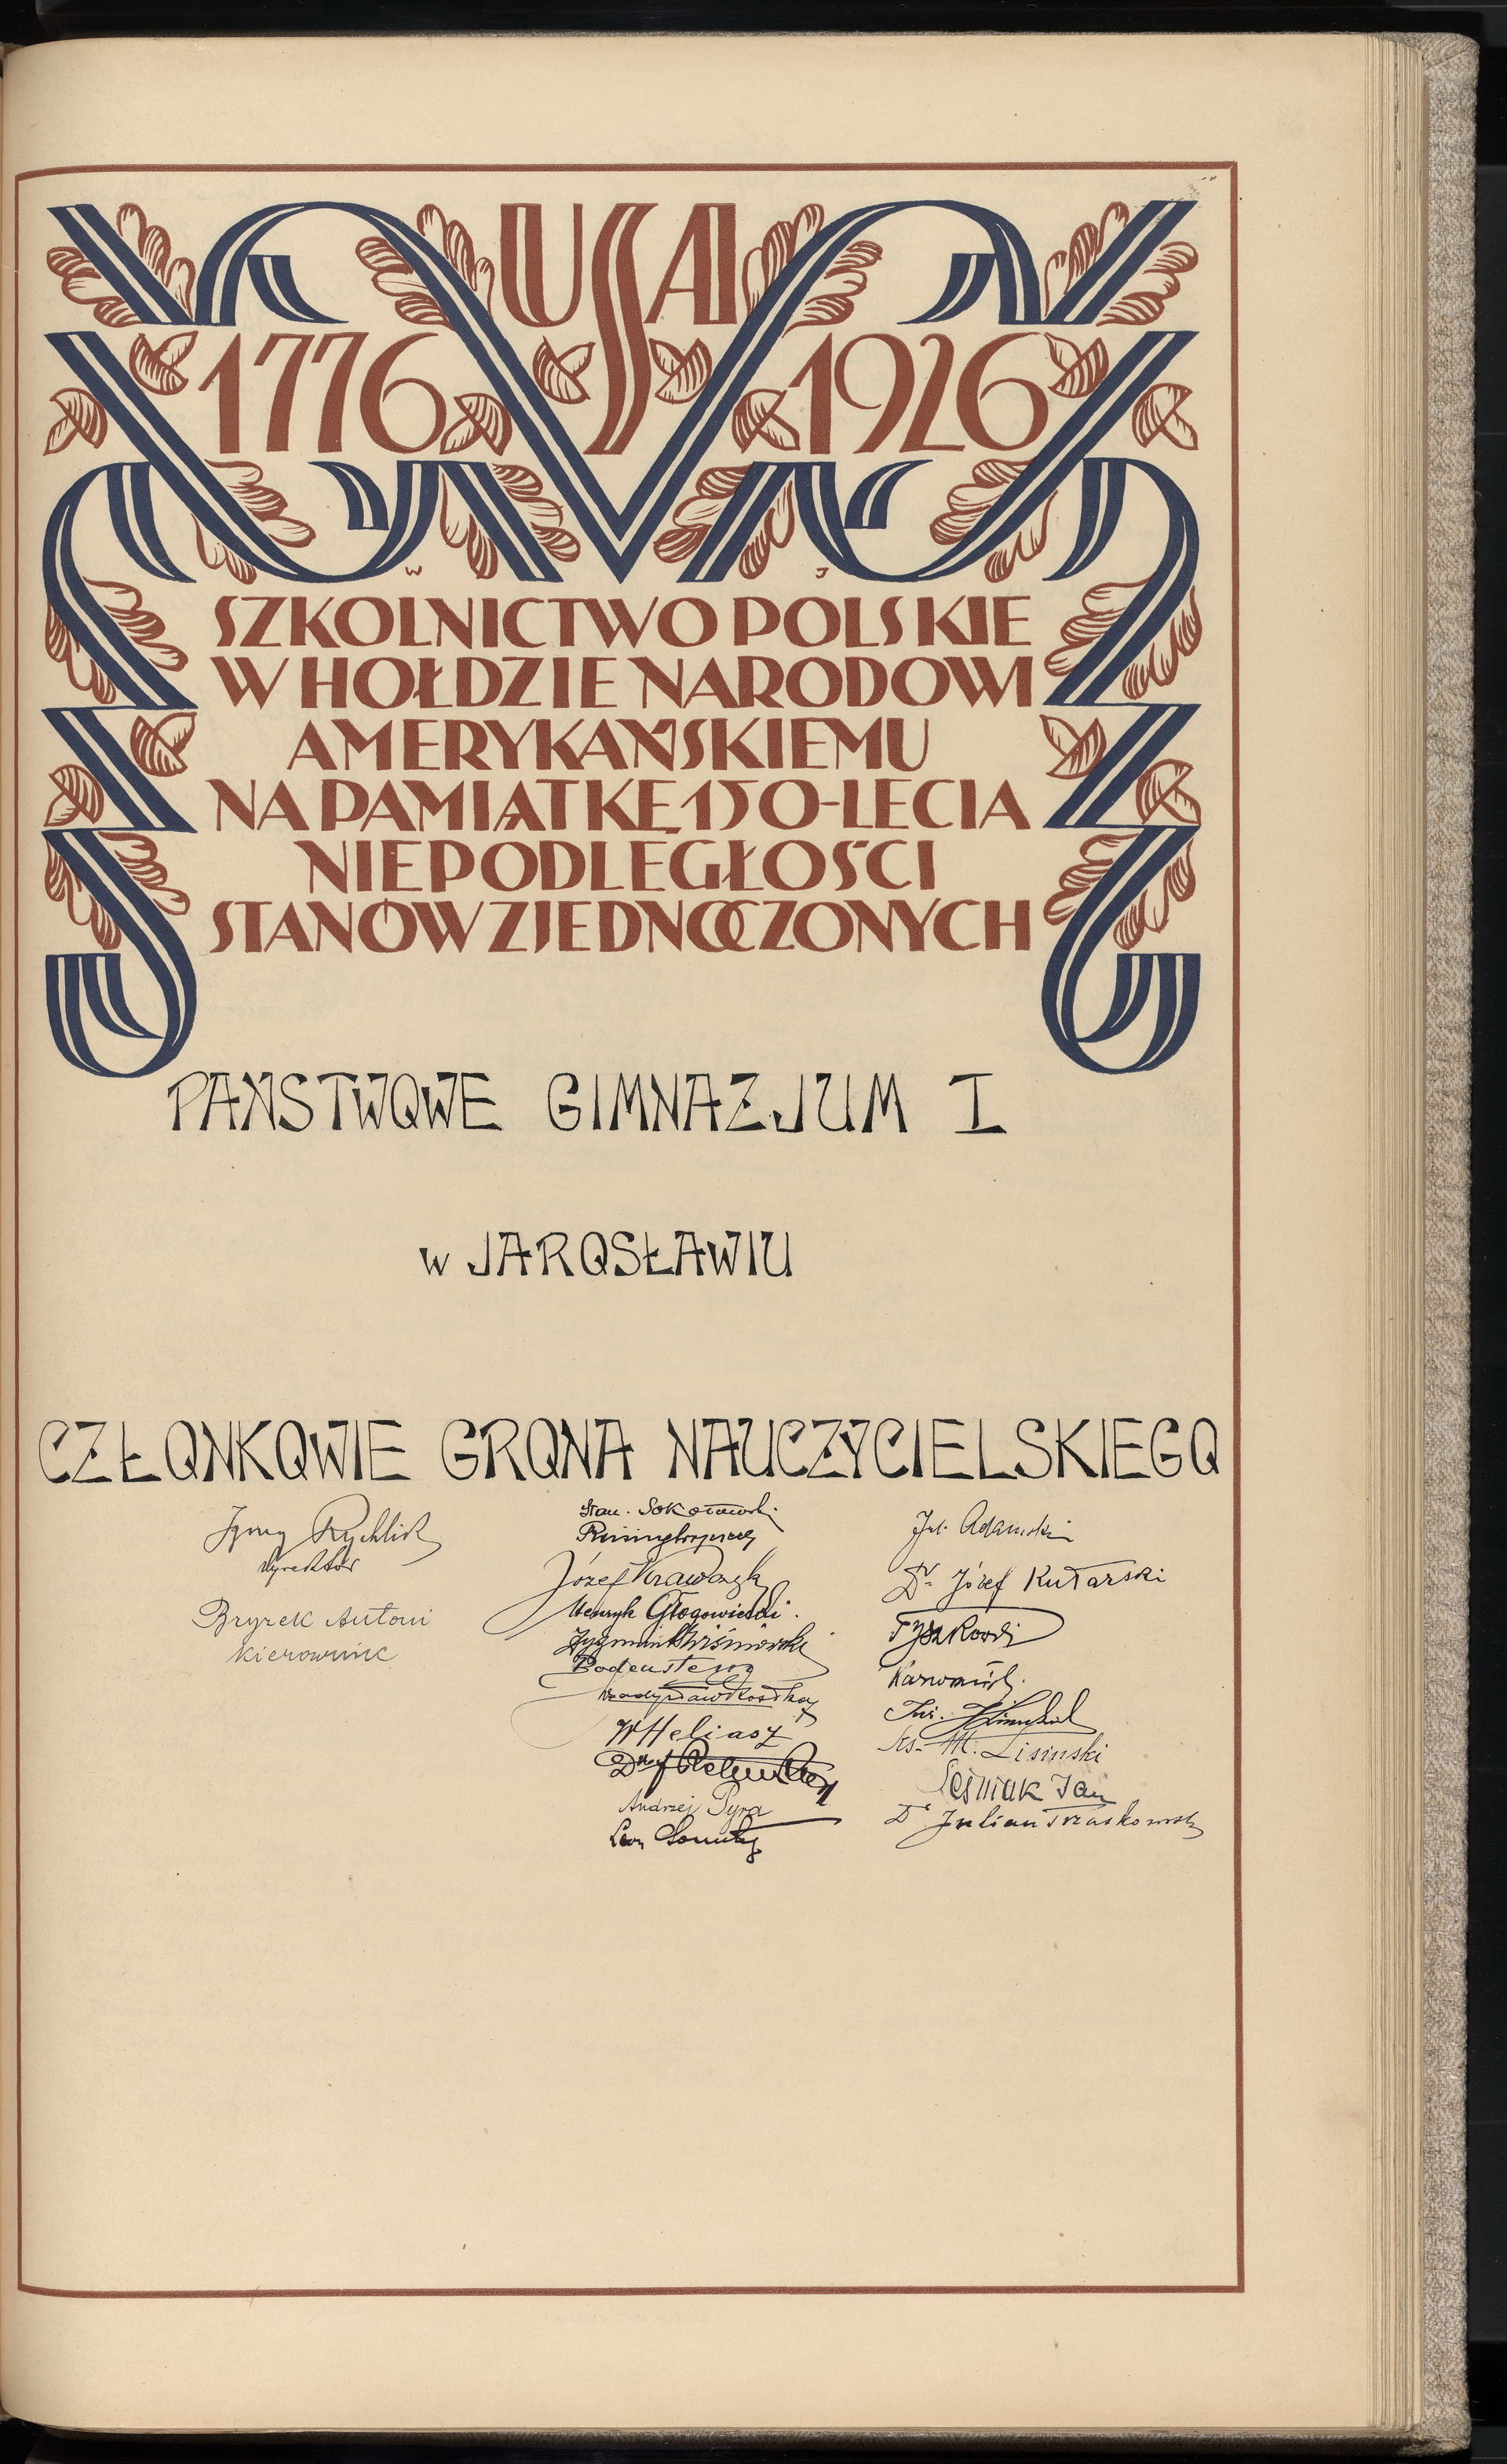 USA
1776 1926
W J
SZKOLNICTWO POLSKIE
W HOŁDZIE NARODOWI
AMERYKAŃSKIEMU
NA PAMIĄTKĘ 150-LECIA
NIEPODLEGŁOŚCI
STANÓW ZJEDNOCZONYCH
PAŃSTWOWE GIMNAZJUM I
w JAROSŁAWIU
CZŁONKOWIE GRONA NAUCZYCIELSKIEGO
Ignacy Rychlik
dyrektor
Bryzek Antoni
kierownik
Stan. Sokołowski
Józef Krawczyk
Henryk Głogowiecki.
Zygmunt Wiśniowski
Władysław
W Heliasz
Dr
Andrzej Pyra
Leon
Jul. Adamski
Dr. Józef Kutarski
Tyszkowski
Ks. M. Lisiński
Leśniak Jan
Dr Julian Trzaskowski